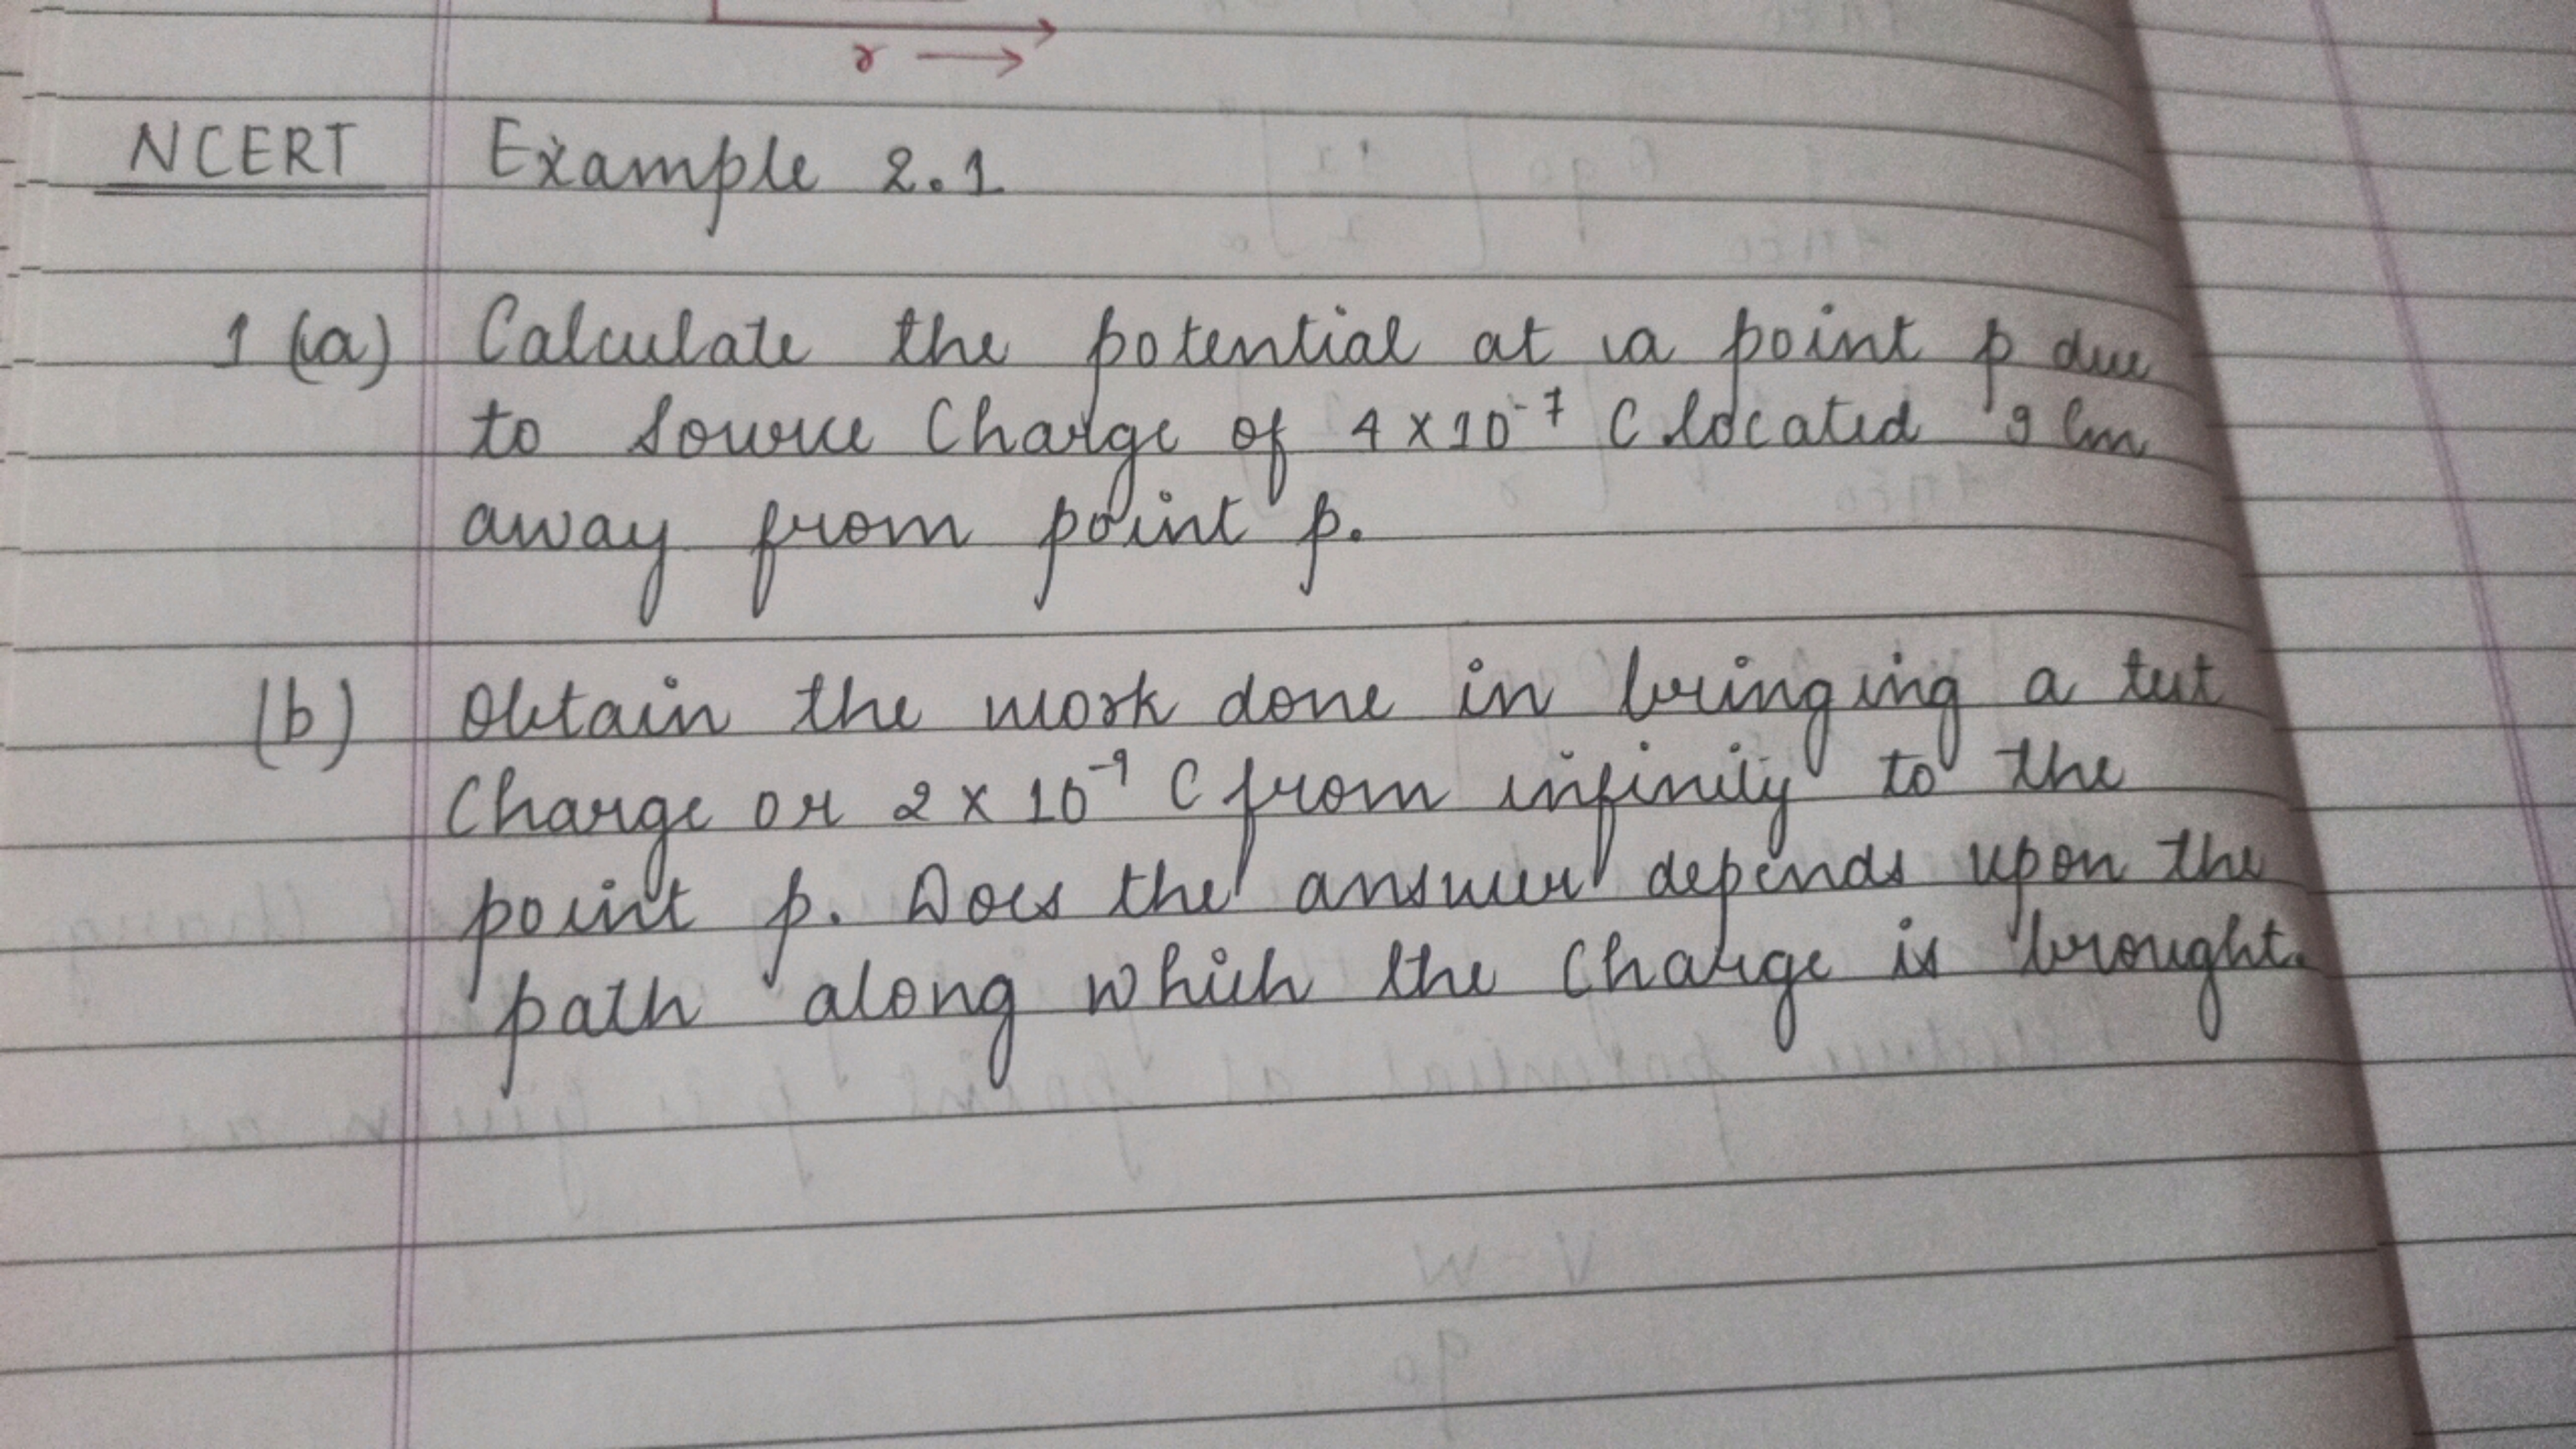 r →
NCERT Example 2.1
1 (a) Calculate the potential at a point p due
to source Charge of 4 x 10⁻⁷ C located 9 Cm
away from point p.
(b) Obtain the work done in bringing a test
Charge or 2 x 10⁻⁹ C from infinity to the
point p. Does the answer depends upon the
path along which the Charge is brought.